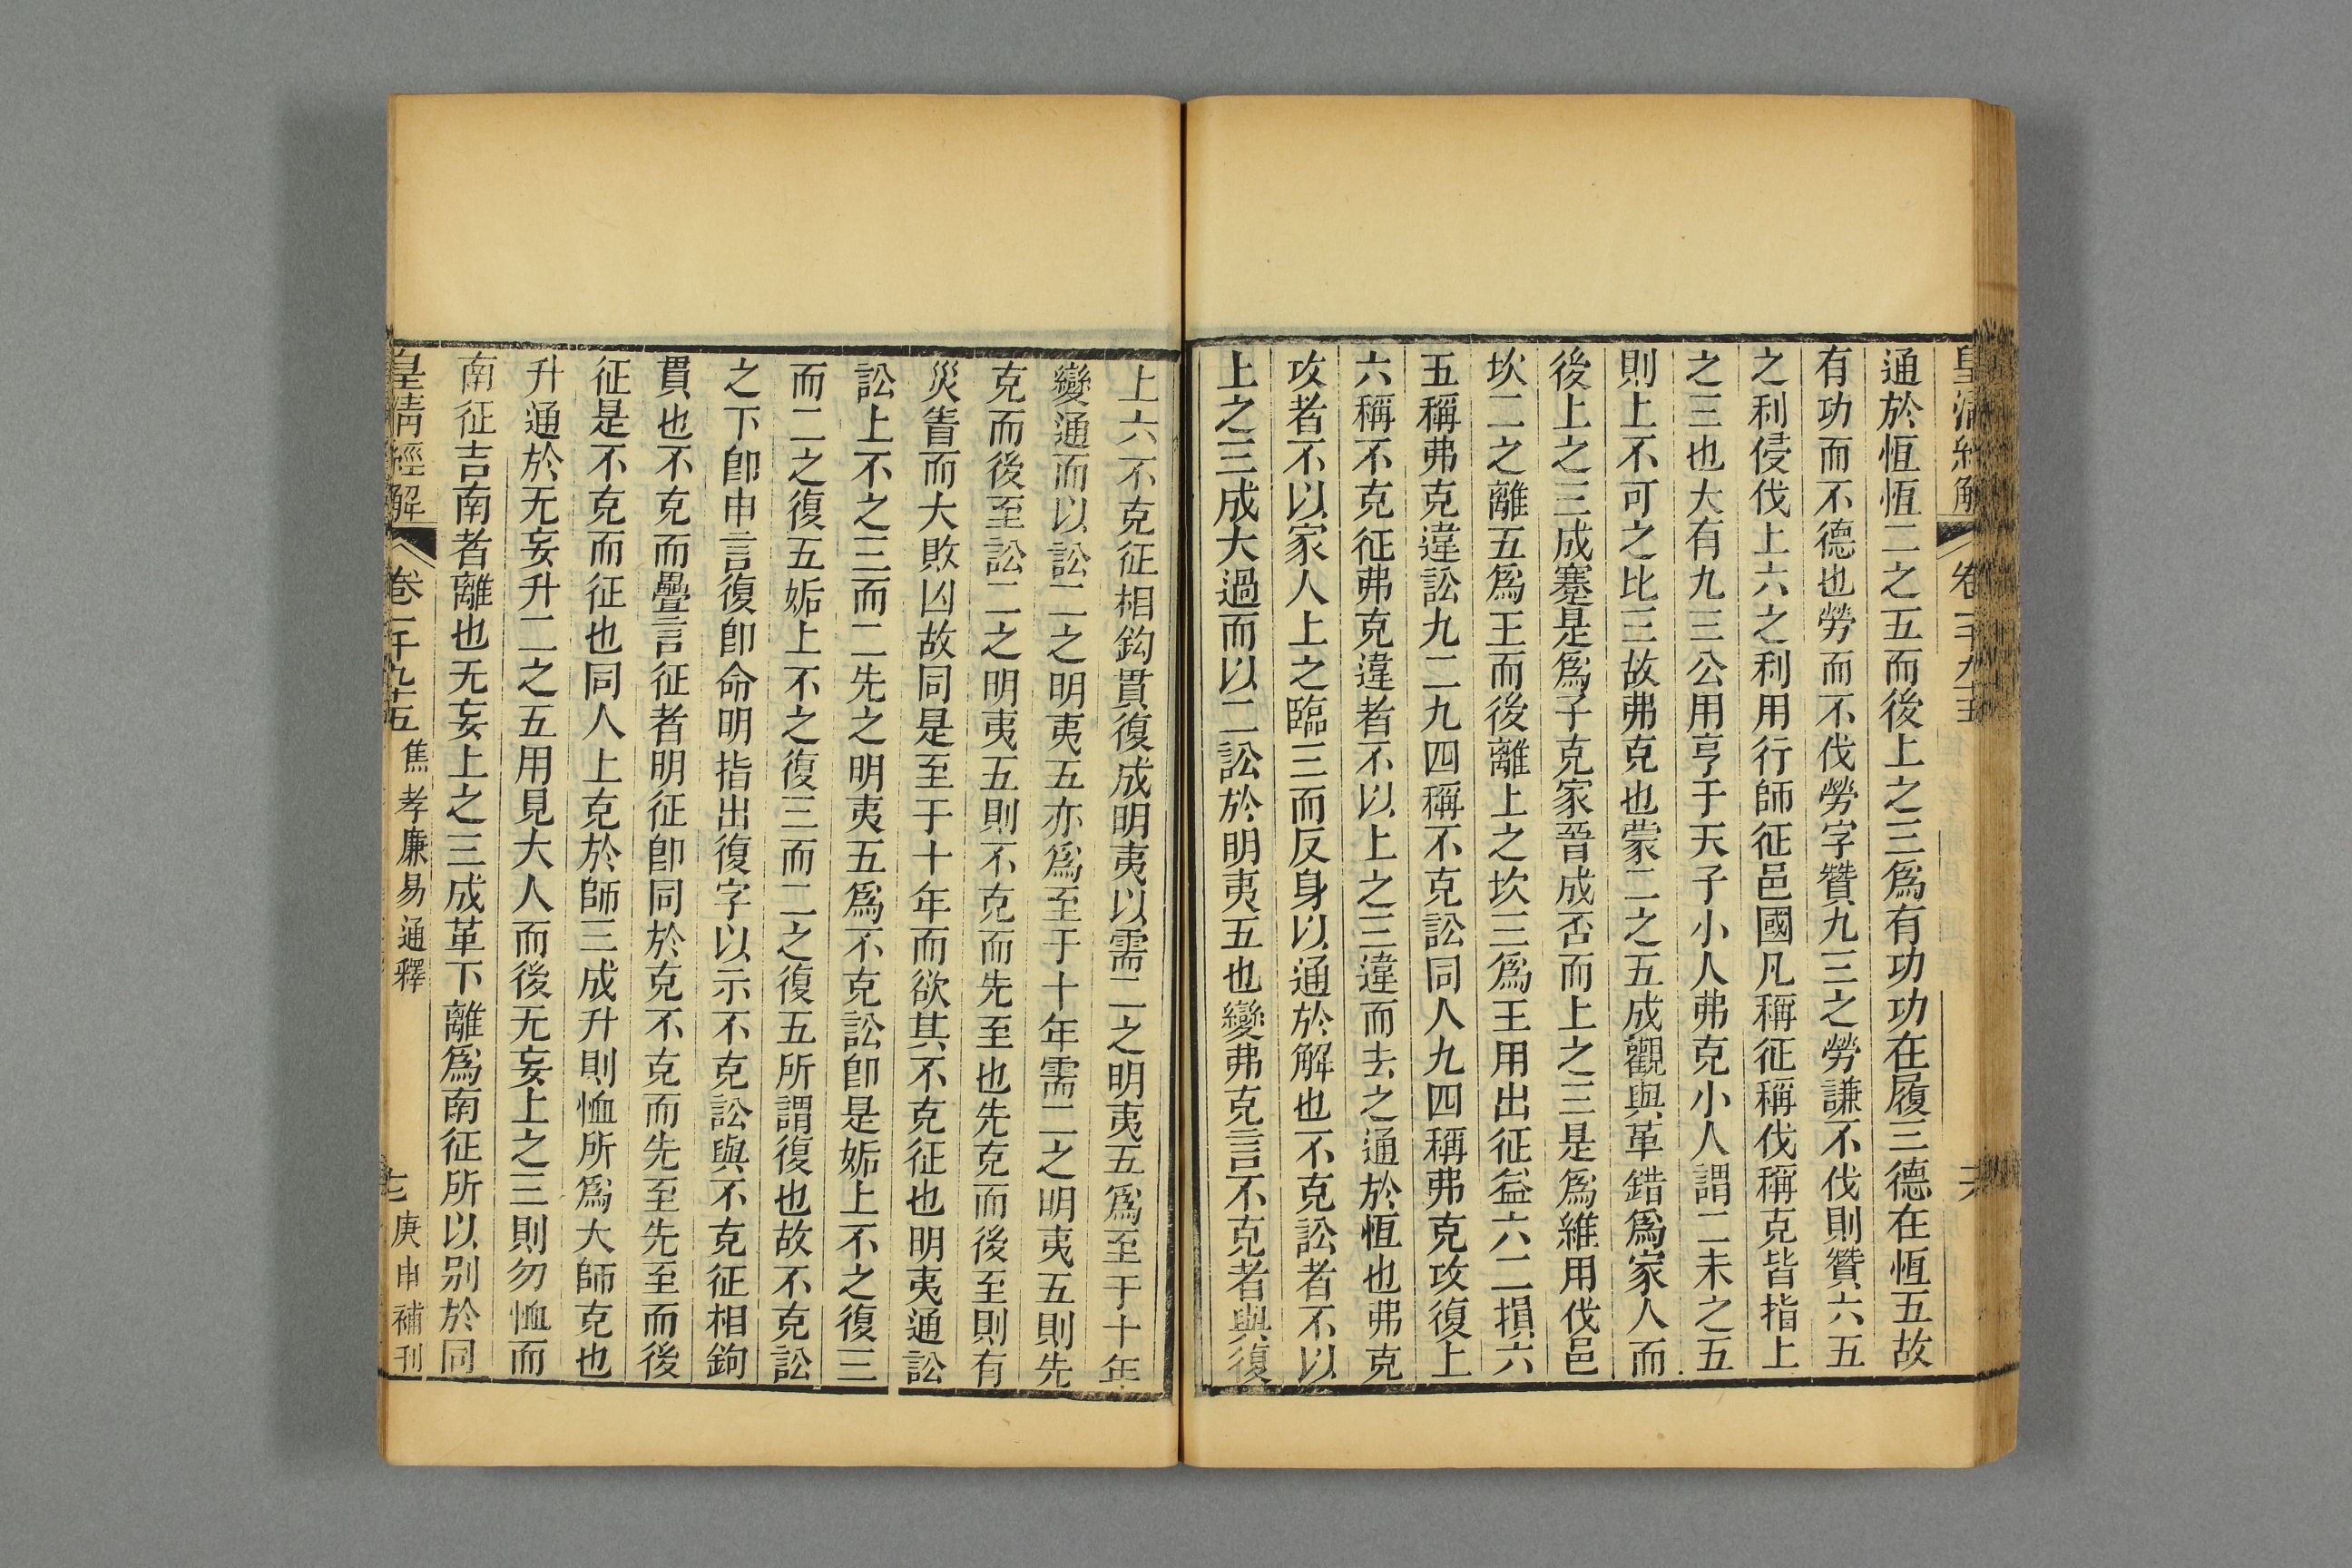 皇清經解 卷一千九十五 六
通於恆恆二之五而後上之三爲有功功在履三德在恆五故
有功而不德也勞而不伐勞字贊九三之勞謙不伐則贊六五
之利侵伐上六之利用行師征邑國凡稱征稱伐稱克皆指上
之三也大有九三公用亨于天子小人弗克小人謂二未之五
則上不可之比三故弗克也蒙二之五成觀與革錯爲家人而
後上之三成蹇是爲子克家晉成否而上之三是爲維用伐邑
坎二之離五爲王而後離上之坎三爲王用出征益六二損六
五稱弗克違訟九二九四稱不克訟同人九四稱弗克攻復上
六稱不克征弗克違者不以上之三違而去之通於恆也弗克
攻者不以家人上之臨三而反身以通於解也不克訟者不以
上之三成大過而以二訟於明夷五也變弗克言不克者與復
上六不克征相鈎貫復成明夷以需二之明夷五爲至于十年
變通而以訟二之明夷五亦爲至于十年需二之明夷五則先
克而後至訟二之明夷五則不克而先至也先克而後至則有
災眚而大敗凶故同是至于十年而欲其不克征也明夷通訟
訟上不之三而二先之明夷五爲不克訟卽是姤上不之復三
而二之復五姤上不之復三而二之復五所謂復也故不克訟
之下卽申言復卽命明指出復字以示不克訟與不克征相鉤
貫也不克而疊言征者明征卽同於克不克而先至先至而後
征是不克而征也同人上克於師三成升則恤所爲大師克也
升通於无妄升二之五用見大人而後无妄上之三則勿恤而
南征吉南者離也无妄上之三成革下離爲南征所以別於同
皇清經解 卷一千九十五 焦孝廉易通釋 七 庚申補刊